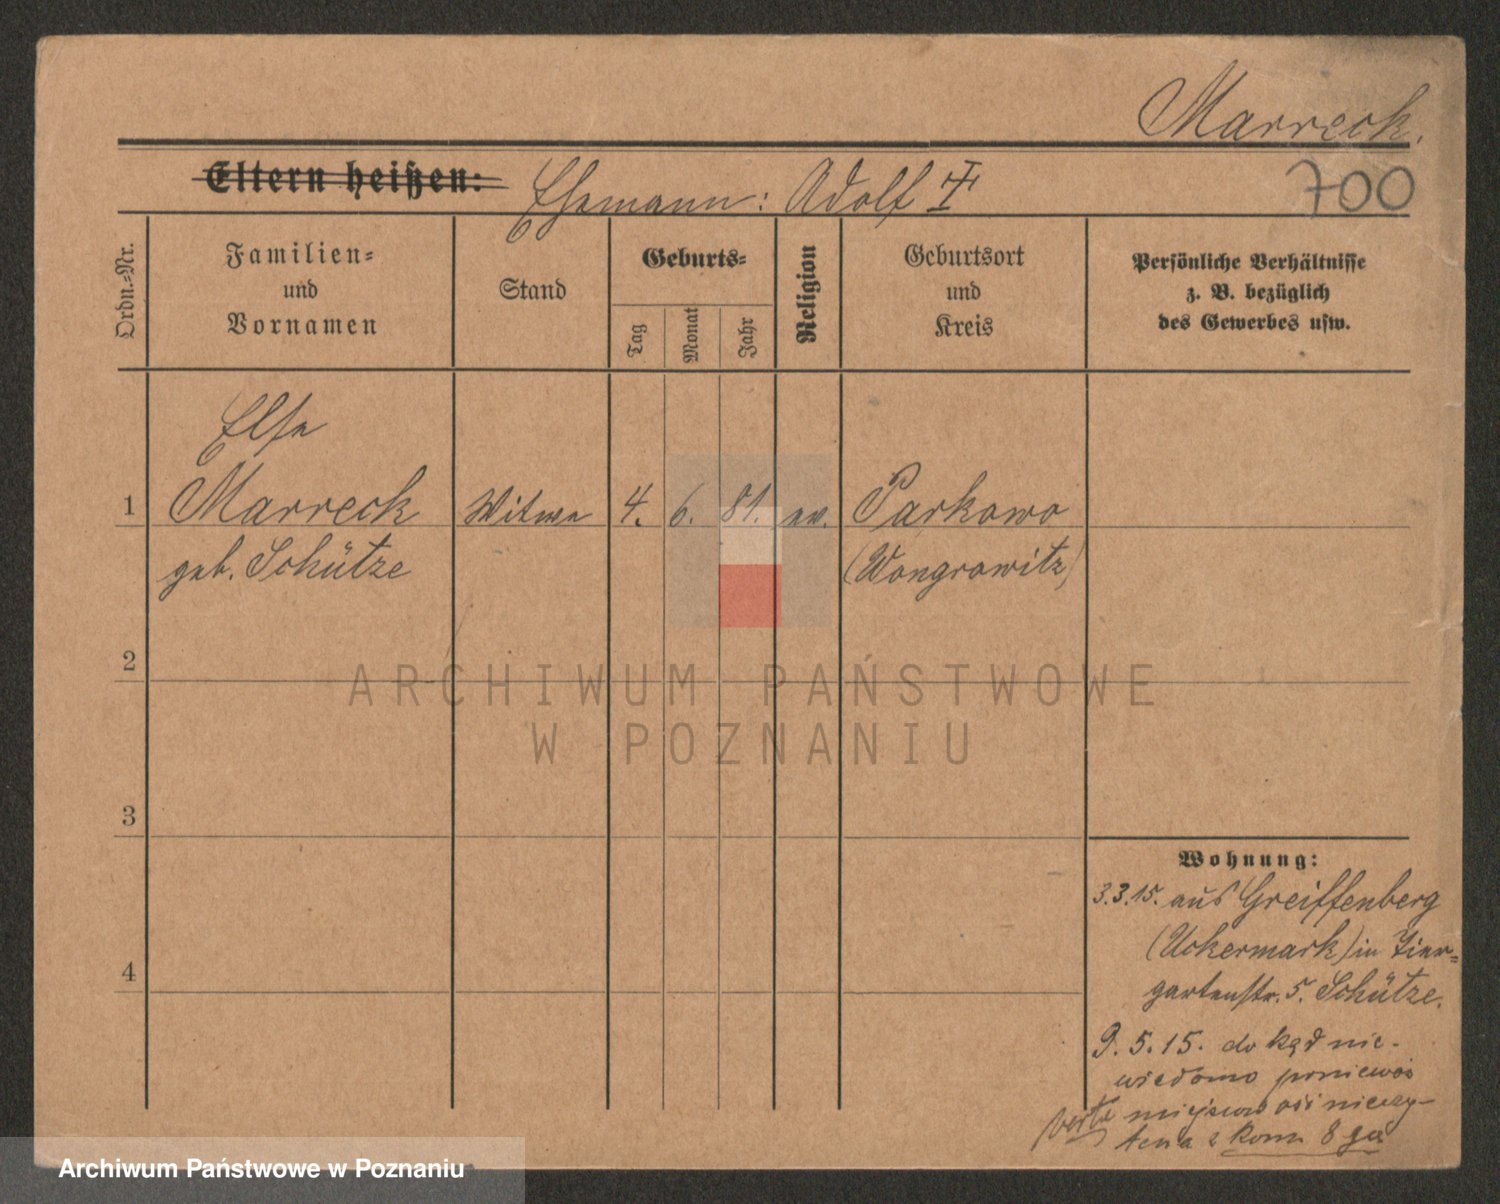 Marreck.
700
Eltern heißen: Ehemann: Adolf
Ordn.-Nr.
Familien-
und
Vornamen
Stand
Geburts-
Tag
Monat
Jahr
Religion
Geburtsort
und
Kreis
Persönliche Verhältnisse
z. B. bezüglich
des Gewerbes usw.
Else
1 Marreck Witwe 4. 6. 81. ev. Parkowo
geb. Schütze (Wongrowitz)
2
ARCHIWUM PAŃSTWOWE
W POZNANIU
3
Wohnung:
3.3.15. aus Greiffenberg
(Uckermark) in Tier-
4
gartenstr. 5. Schütze.
9.5.15. dokąd nie-
wiedomo poniewoż
miejscowość nieczy-
tena z kom 8
Archiwum Państwowe w Poznaniu